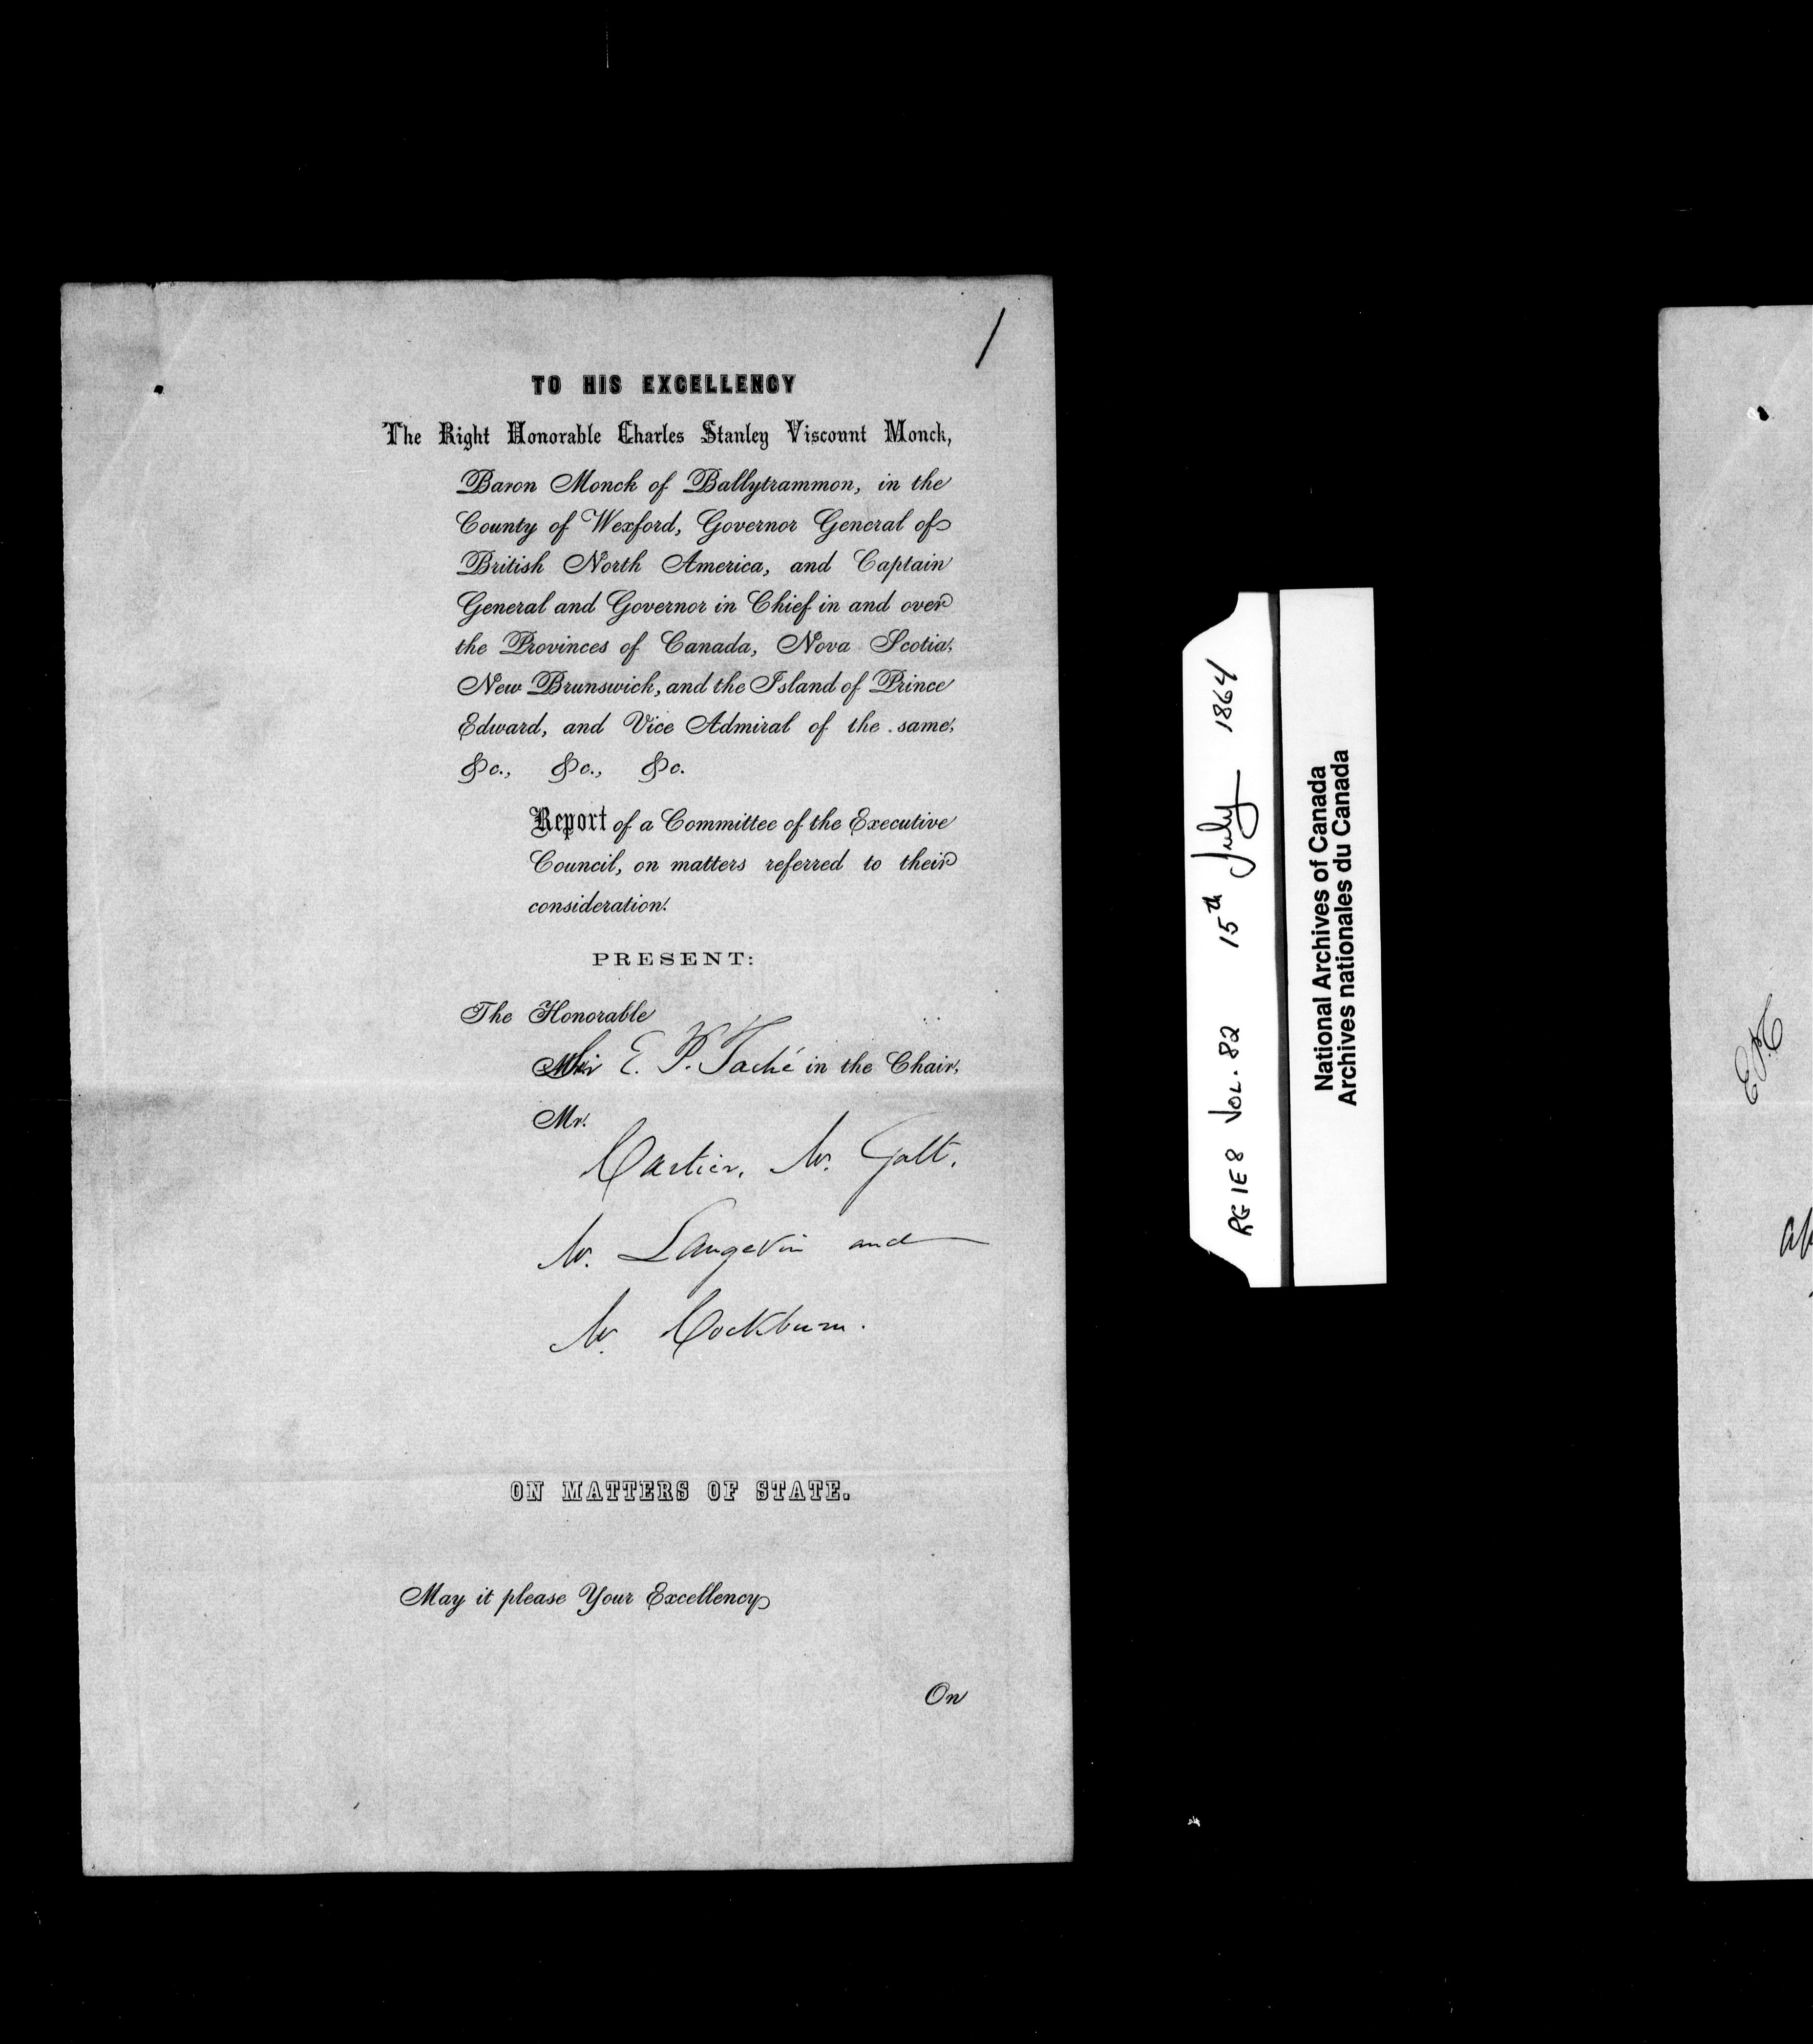 /
TO HIS EXCELLENCY
The Right Honorable Charles Stanley Viscount Monck,
Baron Monck of Ballytrammon, in the
County of Wexford, Governor General of
British North America, and Captain
General and Governor in Chief in and over
the Provinces of Canada, Nova Scotia,
New Brunswick, and the Island of Prince
Edward, and Vice Admiral of the same,
&c., &c., &c.
Report of a Committee of the Executive
Council, on matters referred to their
consideration.
PRESENT:
The Honorable
Sir E. P. Taché in the Chair,
Mr.
Cartier, Mr. Galt,
Mr. Langevin and
Mr. Cockburn.
ON MATTERS OF STATE.
May it please Your Excellency
On
RG 1E8 VOL. 82 15th July 1864
National Archives of Canada
Archives nationales du Canada